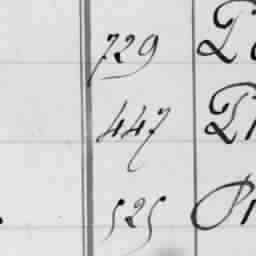 729
447
525